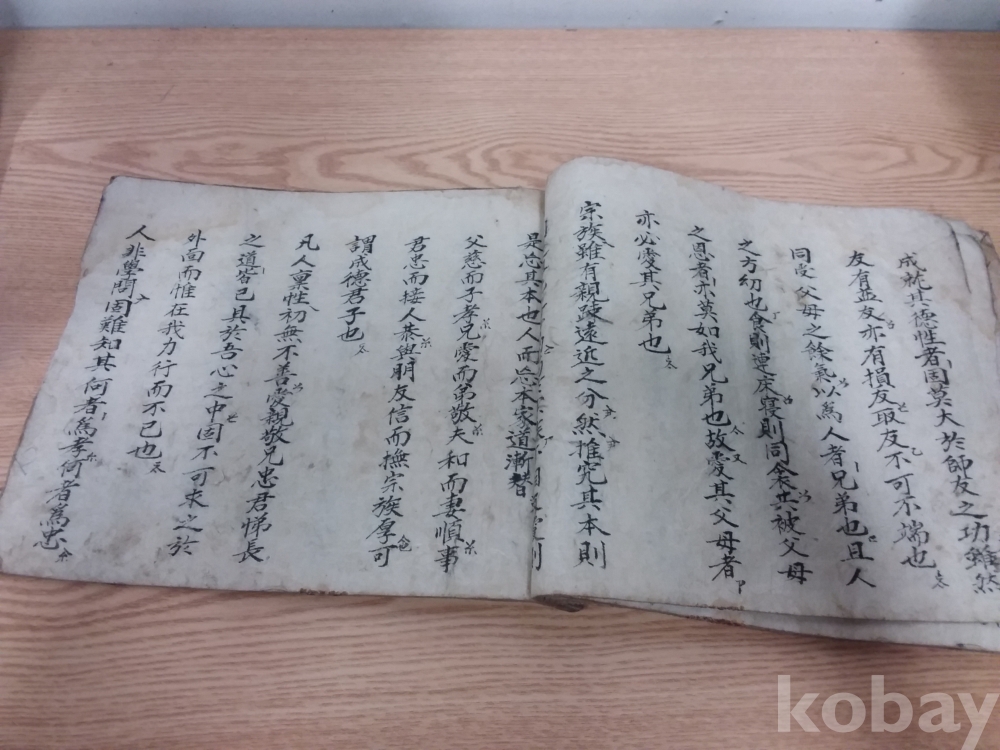 成就其德性者固莫大於師友之功雖然
友有益友亦有損友取友不可不端也
同受父母之餘氣以爲人者兄弟也且人
之方幼也食則連床寢則同衾共被父母
之恩者莫如我兄弟也故愛其父母者
亦必愛其兄弟也
宗族雖有親疎遠近之分然推究其本則
是忘其本也人而忘本家道漸替
父慈而子孝兄愛而弟敬夫和而妻順事
君忠而接人恭與朋友信而撫宗族厚可
謂成德君子也
凡人稟性初無不善愛親敬兄忠君悌長
之道皆已具於吾心之中固不可求之於
外面而惟在我力行而不已也
人非學問固難知其何者爲孝何者爲忠
kobay